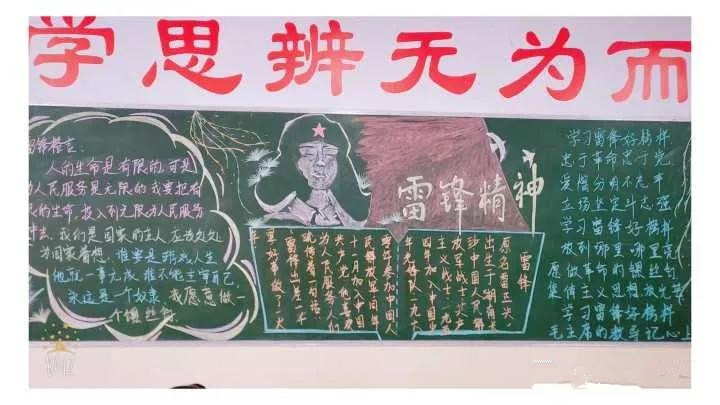 学思辨无为而
雷锋精神
锋格言：
人的生命是有限的，可是
为人民服务是无限的，我要把有
限的生命，投入到无限为人民服务
中去。我们是国家的主人，应该处处
为国家着想。谁要是游戏人生
他就一事无成，谁不能主宰自己
永远是一个奴隶。我愿意做一
个螺丝钉。
雷锋
原名雷正兴，
出生于湖南长
沙，中国人民解
放军战士，共产
主义战士，一九五
四年加入中国少
年先锋队，一九六
民解放军同年
十一月加入中国
共产党
为人民服务
雷锋出差一千里
好事做了一火
车
学习雷锋好榜样
忠于革命忠于党
爱憎分明不忘本
立场坚定斗志强
学习雷锋好榜样
放到哪里哪里亮
愿做革命的螺丝钉
集体主义思想放光芒
学习雷锋好榜样
毛主席的教导记心上